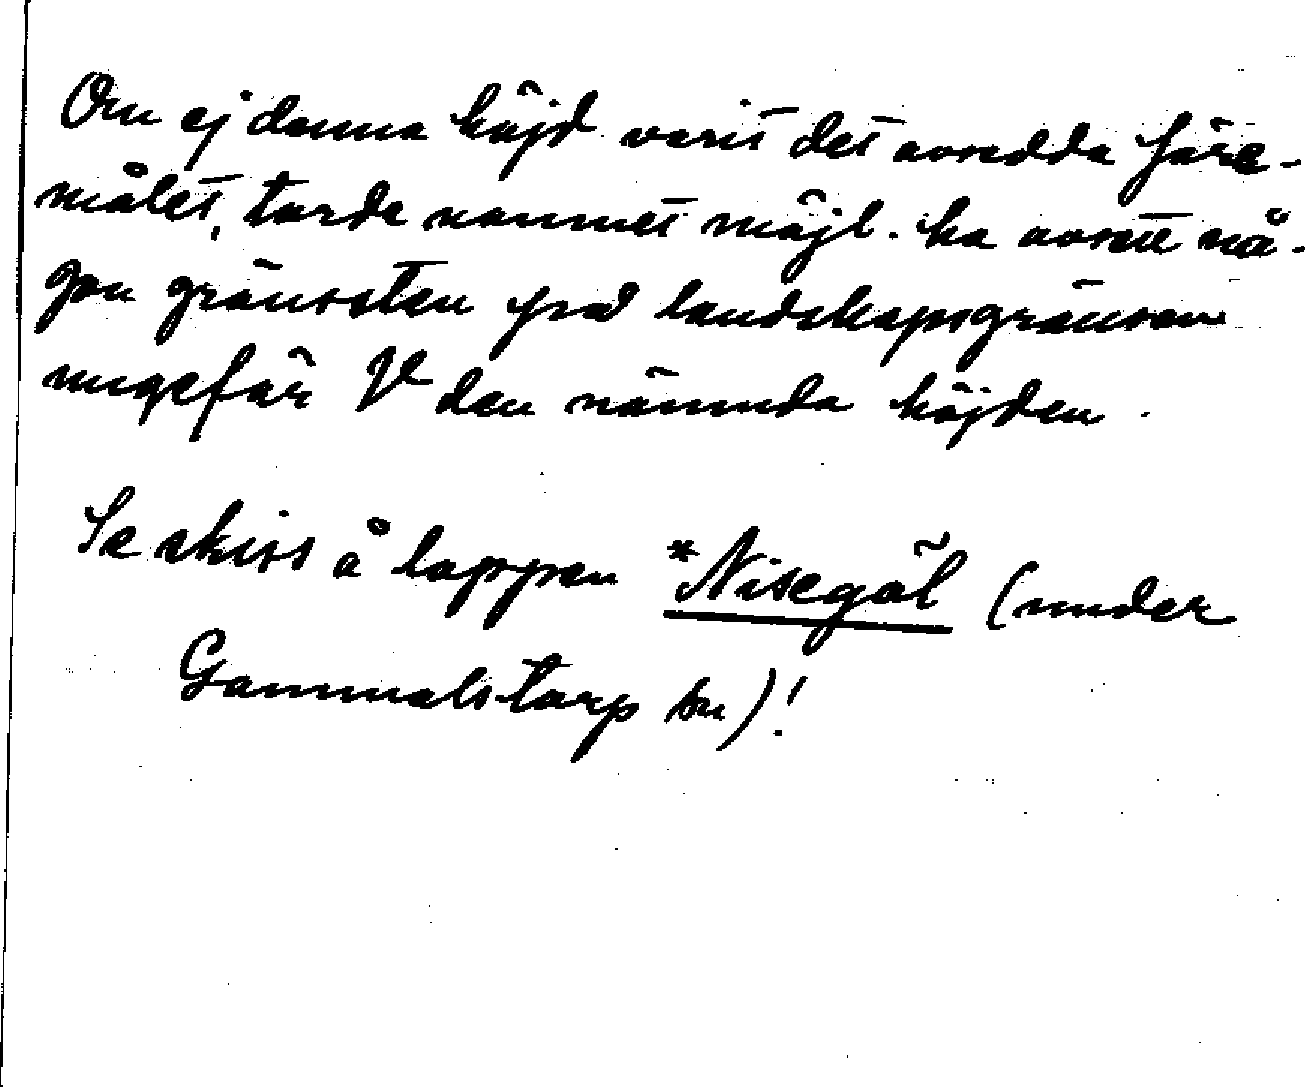 Om ej denna höjd varit det avsedda före-
målet, torde namnet möjl. ha avsett nå-
gon gränssten på landskapsgränsen
ungefär V den nämnda höjden.
Se skiss å lappen *Nisegöl (under
Gammalstorp sn)!